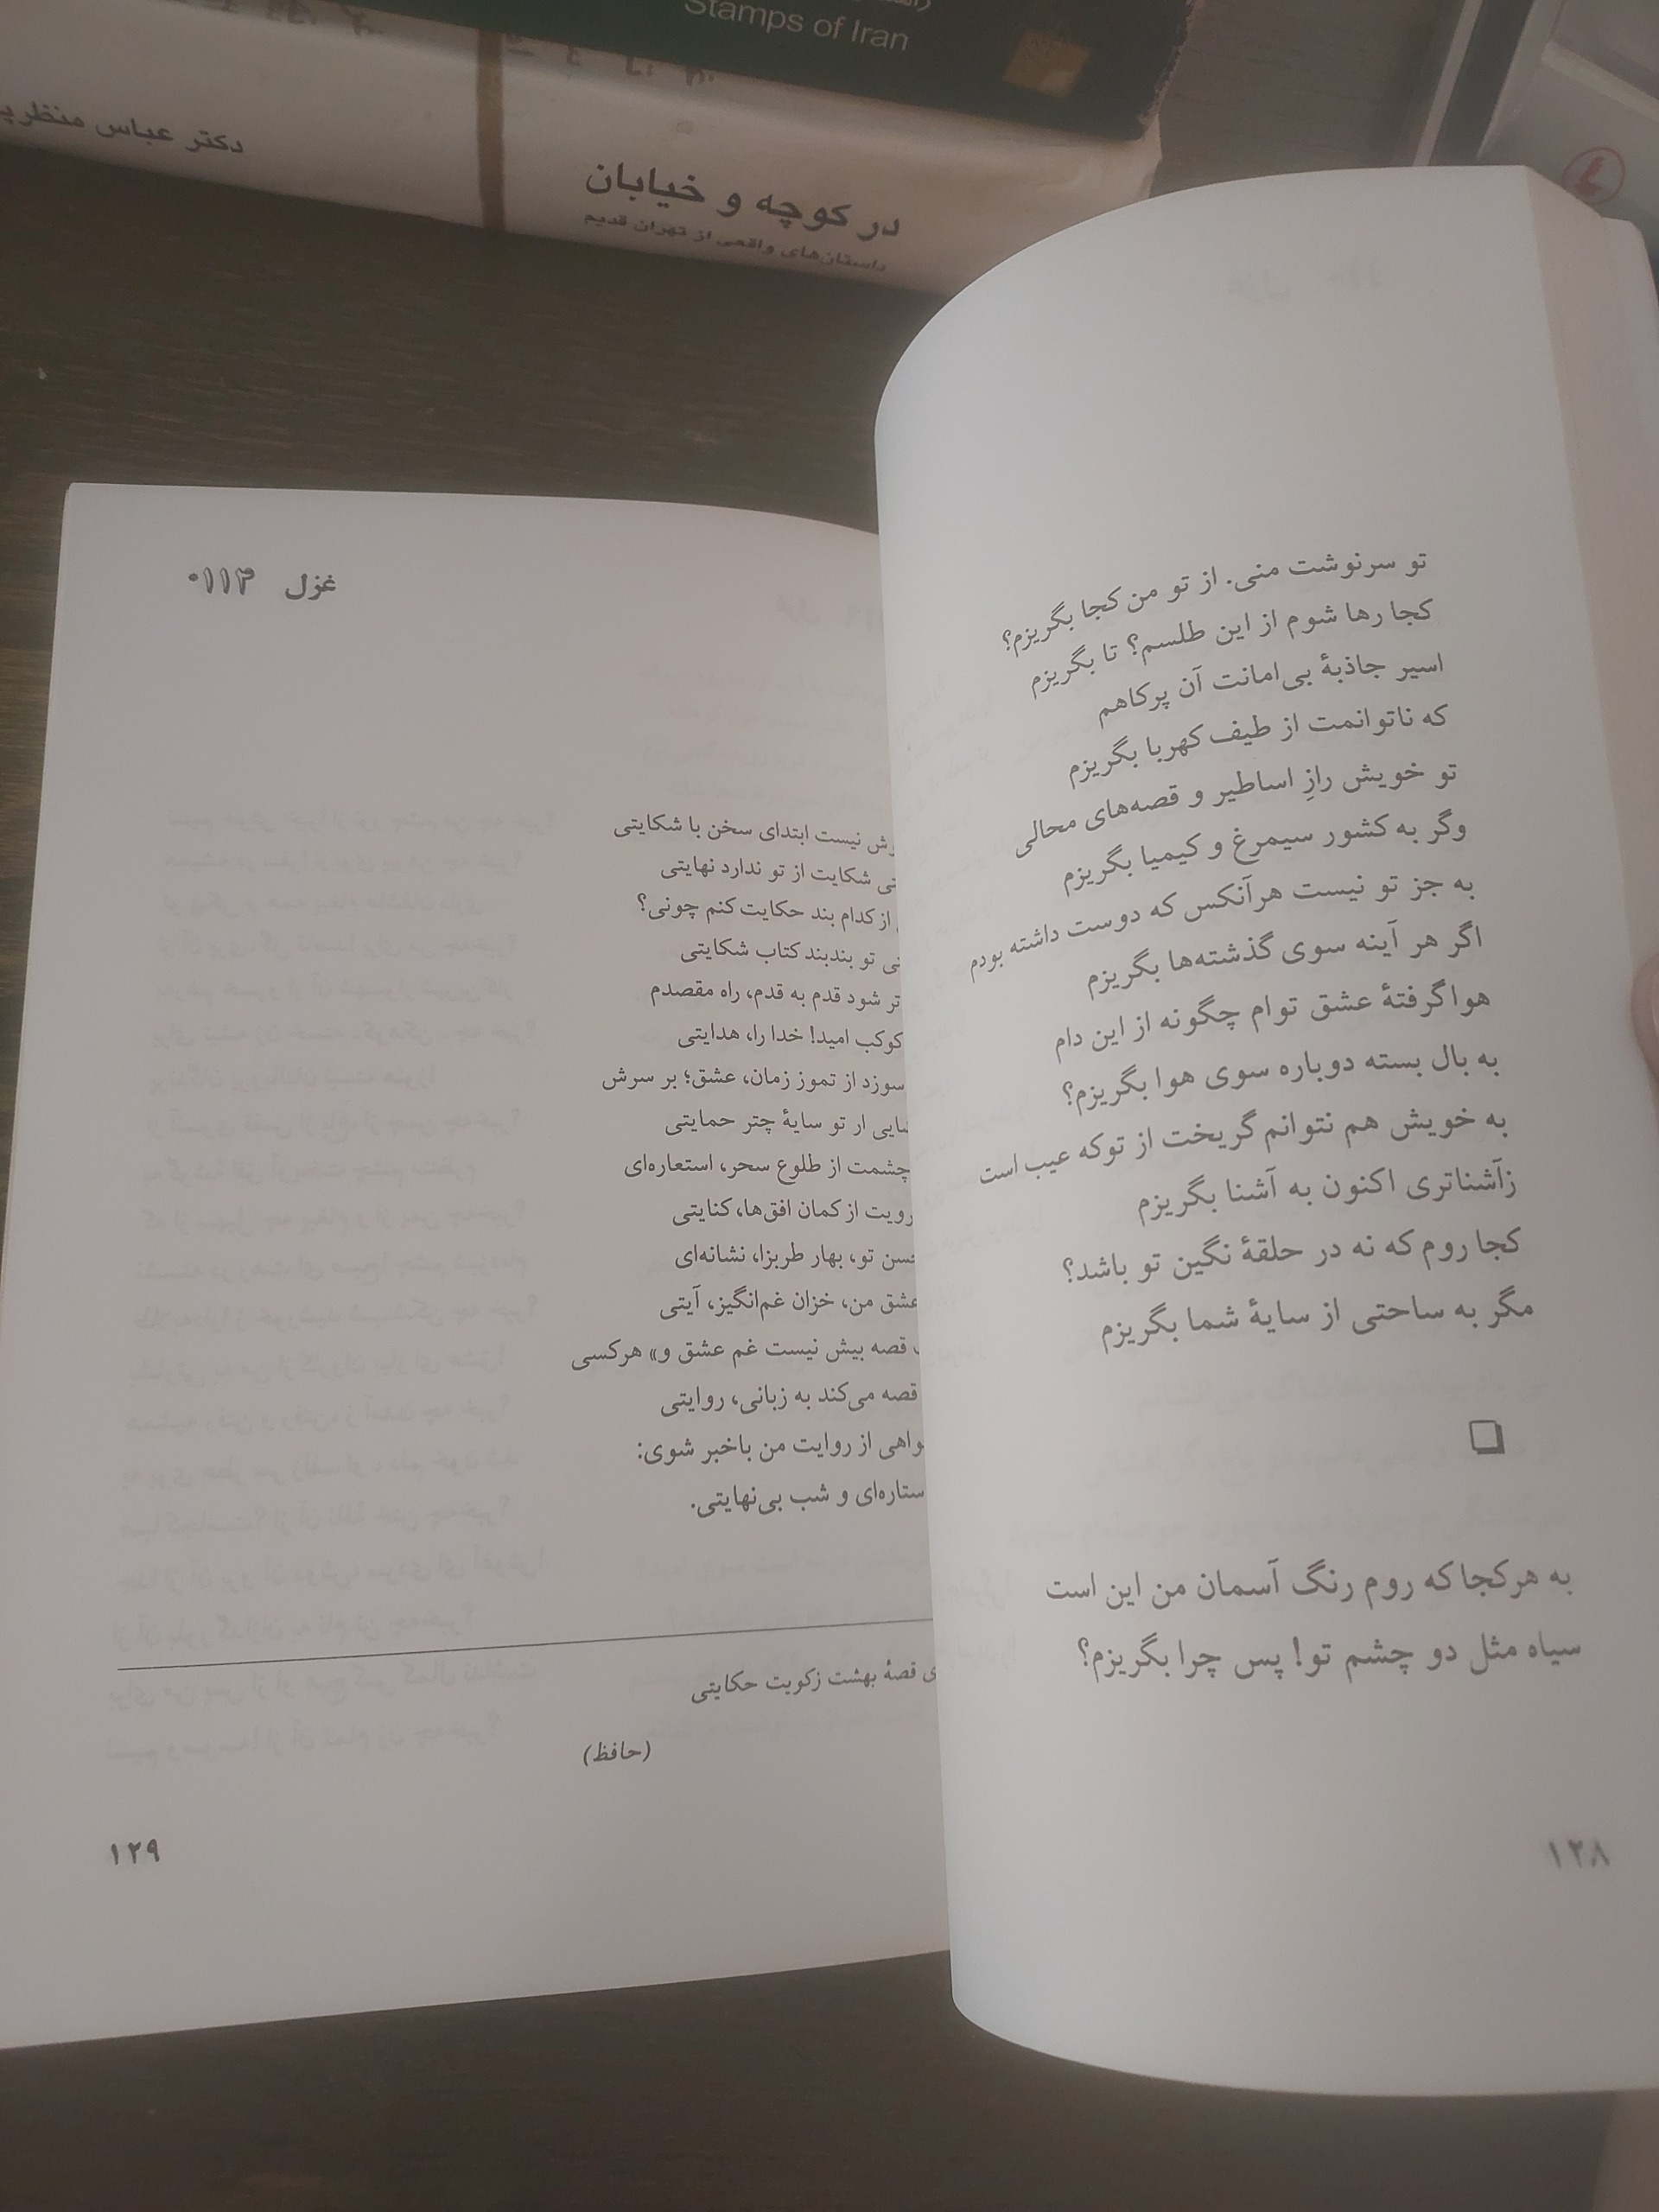 Stamps of Iran
در کوچه و خیابان
داستان‌های واقعی از تهران قدیم
دکتر عباس
تو سرنوشت منی. از تو من کجا بگریزم؟
کجا رها شوم از این طلسم؟ تا بگریزم
اسیر جاذبهٔ بی‌امانت آن پرکاهم
که ناتوانمت از طیف کهربا بگریزم
تو خویش رازِ اساطیر و قصه‌های محالی
وگر به کشور سیمرغ و کیمیا بگریزم
به جز تو نیست هرآنکس که دوست داشته بودم
اگر هر آینه سوی گذشته‌ها بگریزم
هواگرفتهٔ عشق توام چگونه از این دام
به بال بسته دوباره سوی هوا بگریزم؟
به خویش هم نتوانم گریخت از توکه عیب است
زآشناتری اکنون به آشنا بگریزم
کجا روم که نه در حلقهٔ نگین تو باشد؟
مگر به ساحتی از سایهٔ شما بگریزم
به هرکجا که روم رنگ آسمان من این است
سیاه مثل دو چشم تو! پس چرا بگریزم؟
۱۲۸
غزل ۱۱۳۰
نیست ابتدای سخن با شکایتی
شکایت از تو ندارد نهایتی
از کدام بند حکایت کنم چونی؟
تو بندبند کتاب شکایتی
تر شود قدم به قدم، راه مقصدم
کوکب امید! خدا را، هدایتی
سوزد از تموز زمان، عشق؛ بر سرش
ار تو سایهٔ چتر حمایتی
چشمت از طلوع سحر، استعاره‌ای
رویت از کمان افق‌ها، کنایتی
حسن تو، بهار طربزا، نشانه‌ای
عشق من، خزان غم‌انگیز، آیتی
قصه بیش نیست غم عشق و» هرکسی
قصه می‌کند به زبانی، روایتی
از روایت من باخبر شوی:
ستاره‌ای و شب بی‌نهایتی.
قصهٔ بهشت زکویت حکایتی
(حافظ)
۱۲۹